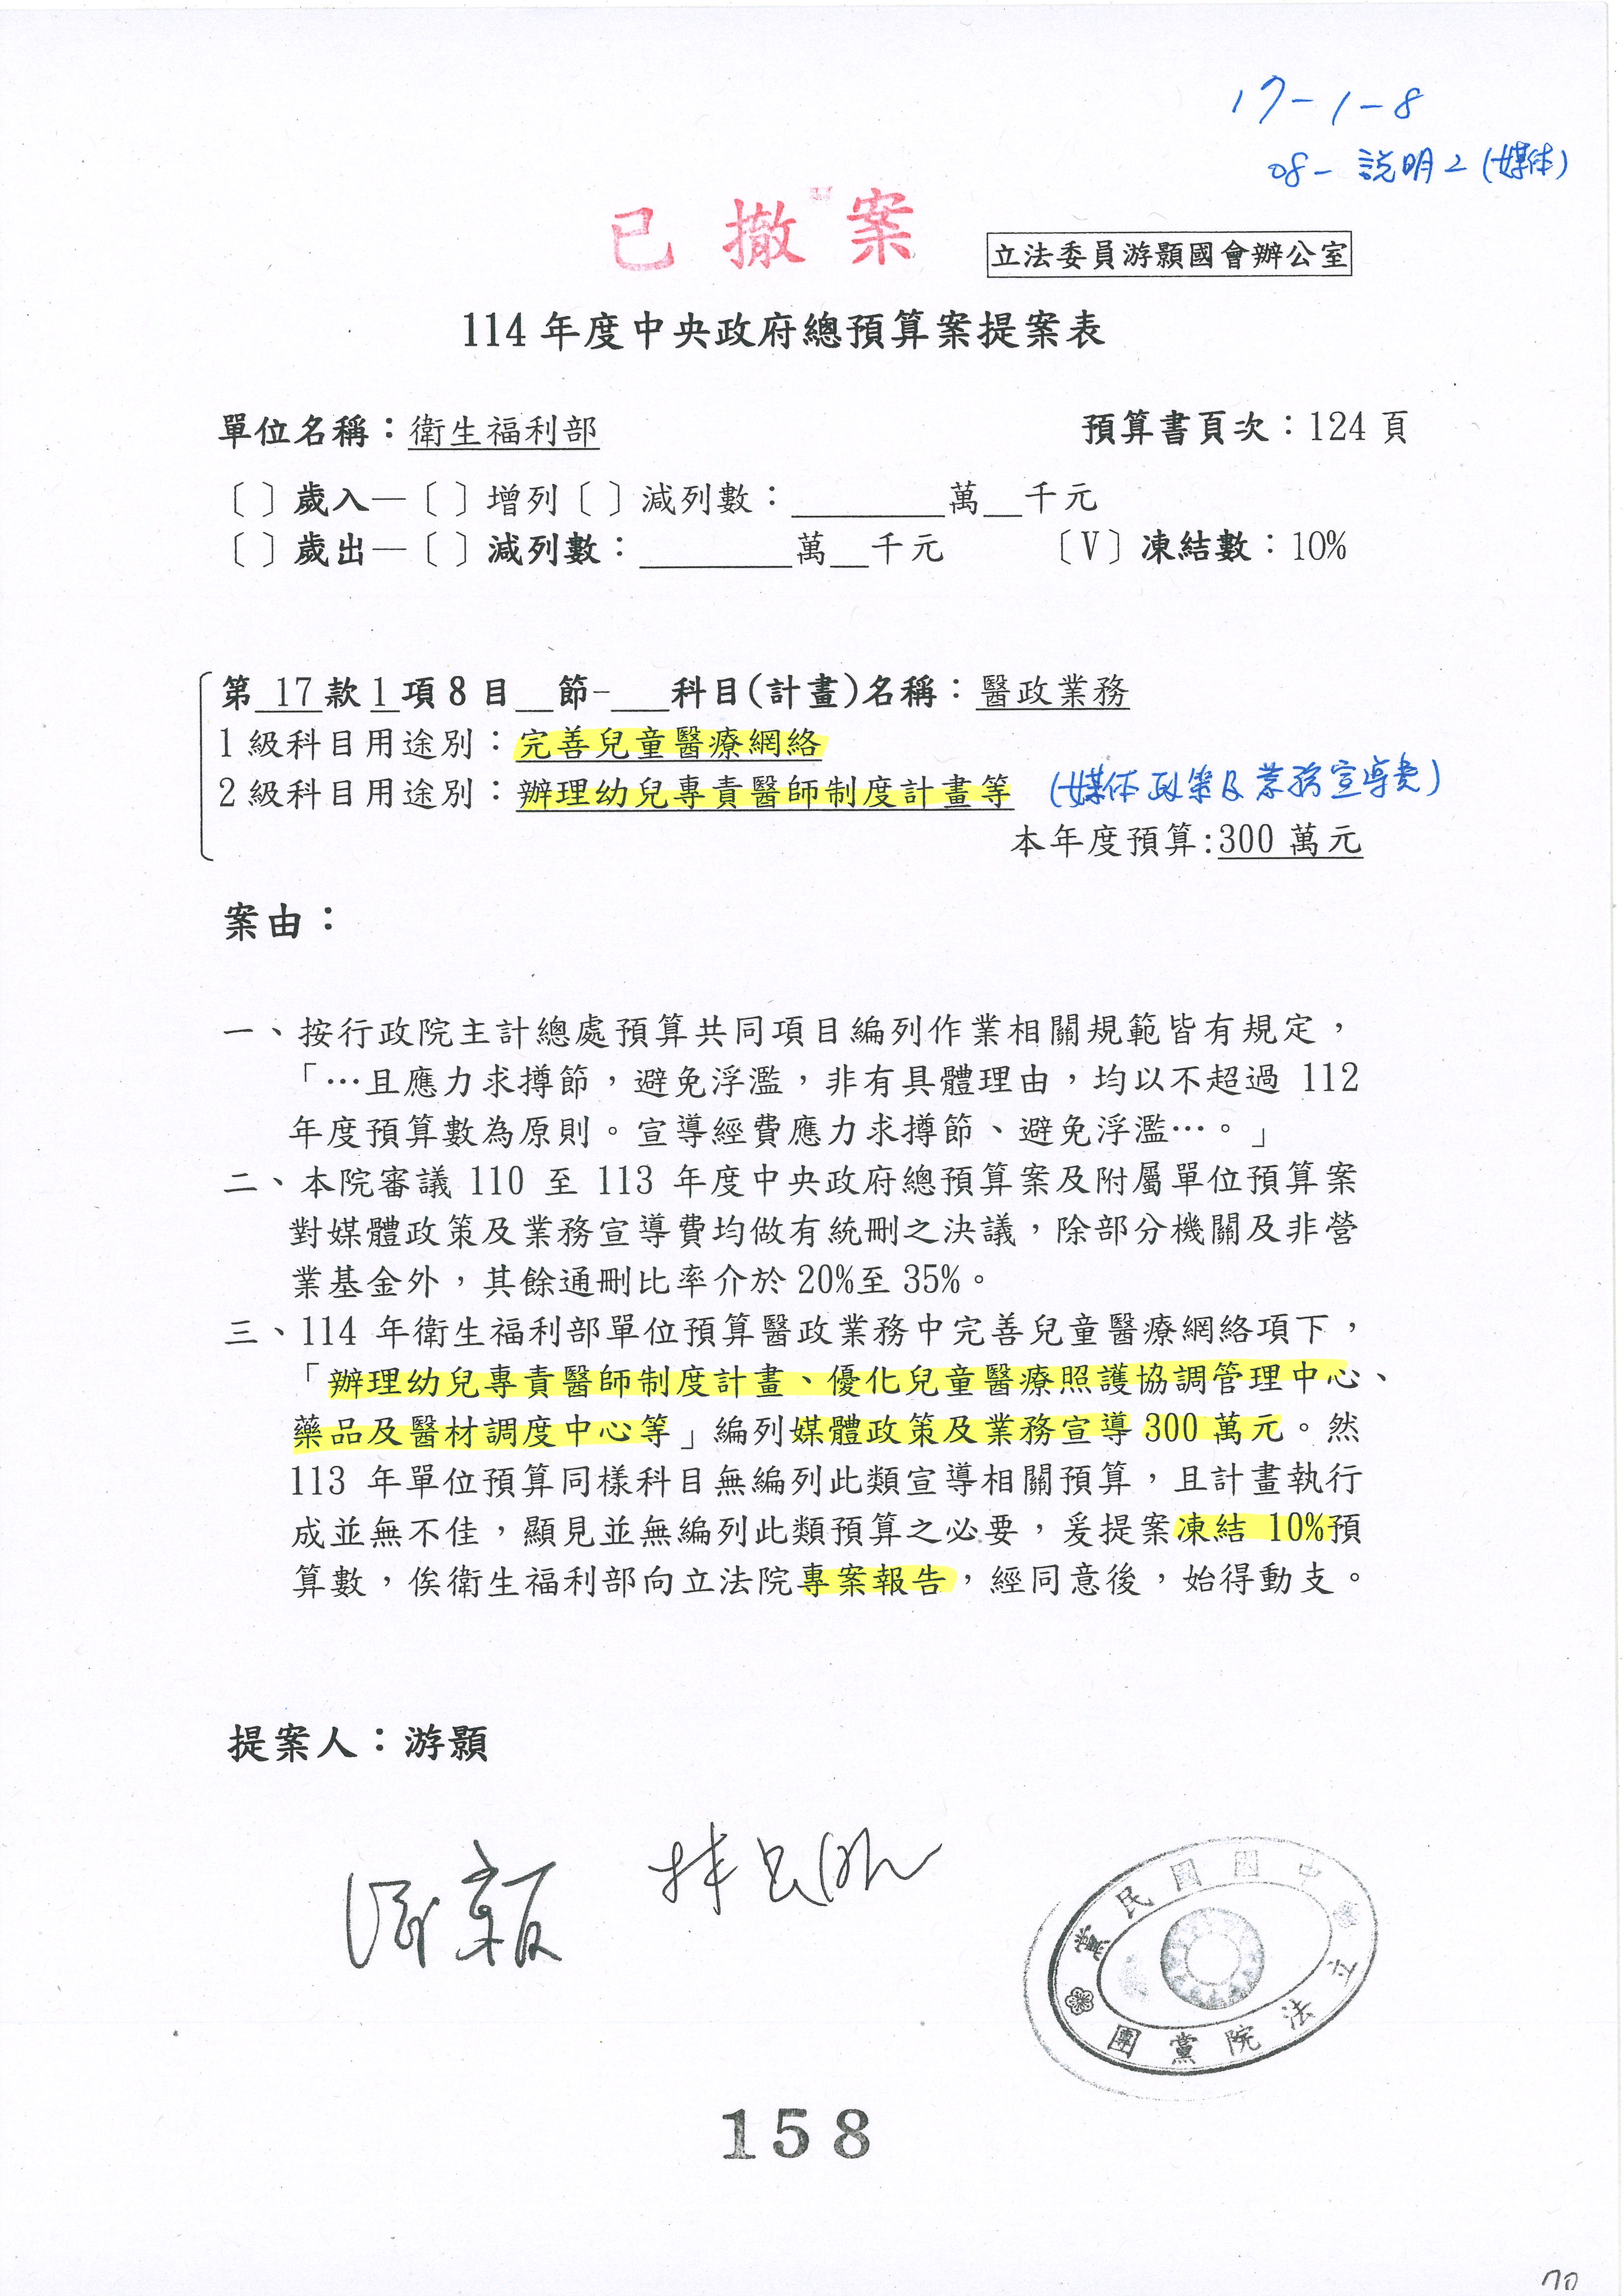 17-1-8
08-說明2(媒体)
已撤案
立法委員游顥國會辦公室
114年度中央政府總預算案提案表
單位名稱：衛生福利部 預算書頁次：124頁
〔 〕歲入—〔 〕增列〔 〕減列數：________萬__千元
〔 〕歲出—〔 〕減列數：________萬__千元 〔V〕凍結數：10%
第 17 款 1 項 8 目__節-___科目(計畫)名稱：醫政業務
1級科目用途別：完善兒童醫療網絡
2級科目用途別：辦理幼兒專責醫師制度計畫等 (媒体政策及業務宣導費)
本年度預算:300萬元
案由：
一、按行政院主計總處預算共同項目編列作業相關規範皆有規定，
「…且應力求撙節，避免浮濫，非有具體理由，均以不超過 112
年度預算數為原則。宣導經費應力求撙節、避免浮濫…。」
二、本院審議 110 至 113 年度中央政府總預算案及附屬單位預算案
對媒體政策及業務宣導費均做有統刪之決議，除部分機關及非營
業基金外，其餘通刪比率介於20%至 35%。
三、114 年衛生福利部單位預算醫政業務中完善兒童醫療網絡項下，
「辦理幼兒專責醫師制度計畫、優化兒童醫療照護協調管理中心、
藥品及醫材調度中心等」編列媒體政策及業務宣導 300 萬元。然
113 年單位預算同樣科目無編列此類宣導相關預算，且計畫執行
成並無不佳，顯見並無編列此類預算之必要，爰提案凍結 10%預
算數，俟衛生福利部向立法院專案報告，經同意後，始得動支。
提案人：游顥
游顥
中國國民黨
立法院黨團
158
70